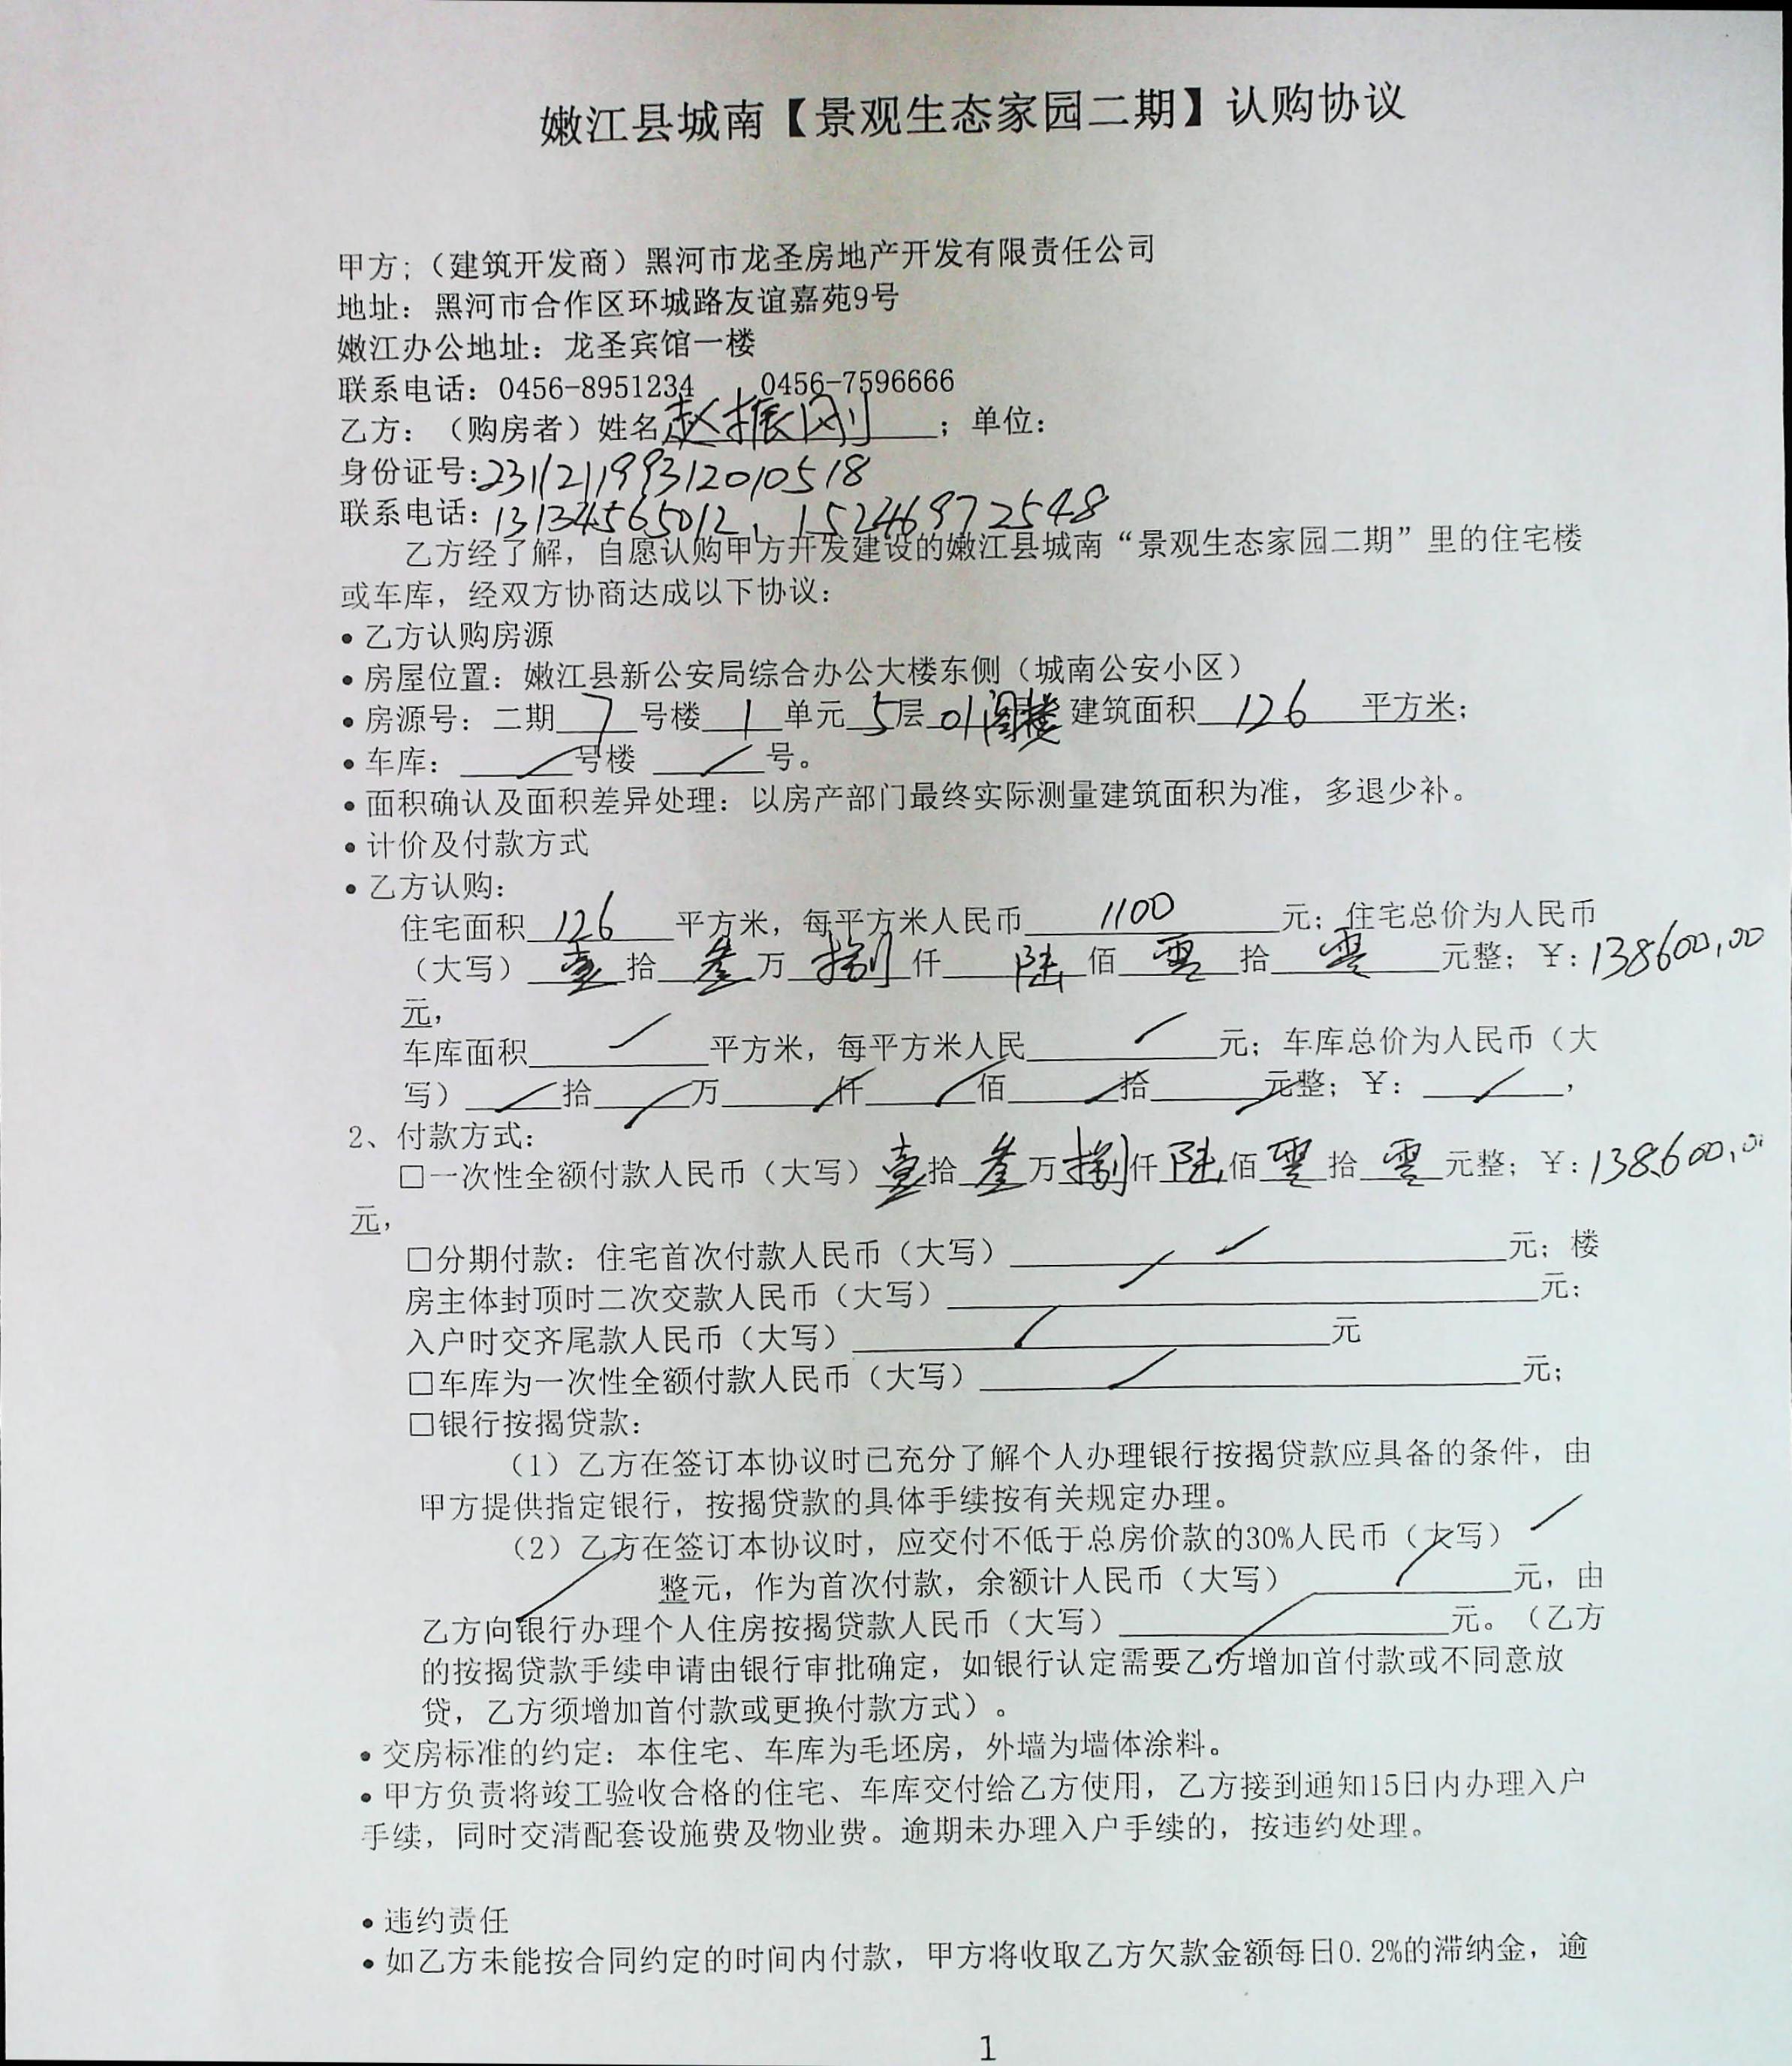 嫩江县城南【景观生态家园二期】认购协议
甲方;（建筑开发商）黑河市龙圣房地产开发有限责任公司
地址：黑河市合作区环城路友谊嘉苑9号
嫩江办公地址：龙圣宾馆一楼
联系电话：0456-8951234 0456-7596666
乙方：（购房者）姓名赵振刚；单位：
身份证号:231121199312010518
联系电话:13134565012，15246972548
乙方经了解，自愿认购甲方开发建设的嫩江县城南“景观生态家园二期”里的住宅楼
或车库，经双方协商达成以下协议：
•乙方认购房源
•房屋位置：嫩江县新公安局综合办公大楼东侧（城南公安小区）
•房源号：二期 7 号楼 1 单元 5 层 01阁楼 建筑面积 126 平方米；
•车库： / 号楼 / 号。
•面积确认及面积差异处理：以房产部门最终实际测量建筑面积为准，多退少补。
•计价及付款方式
•乙方认购：
住宅面积 126 平方米，每平方米人民币 1100 元；住宅总价为人民币
（大写） 壹 拾 叁 万 捌 仟 陆 佰 零 拾 零 元整；￥：138600.00
元，
车库面积 / 平方米，每平方米人民 / 元；车库总价为人民币（大
写） / 拾 / 万 / 仟 / 佰 / 拾 / 元整；￥： / ，
2、付款方式：
□一次性全额付款人民币（大写）壹拾叁万捌仟陆佰零拾零元整；￥：138600.00
元，
□分期付款：住宅首次付款人民币（大写） / 元；楼
房主体封顶时二次交款人民币（大写） / 元；
入户时交齐尾款人民币（大写） / 元
□车库为一次性全额付款人民币（大写） / 元；
□银行按揭贷款：
（1）乙方在签订本协议时已充分了解个人办理银行按揭贷款应具备的条件，由
甲方提供指定银行，按揭贷款的具体手续按有关规定办理。
（2）乙方在签订本协议时，应交付不低于总房价款的30%人民币（大写） /
/ 整元，作为首次付款，余额计人民币（大写） / 元，由
乙方向银行办理个人住房按揭贷款人民币（大写） / 元。（乙方
的按揭贷款手续申请由银行审批确定，如银行认定需要乙方增加首付款或不同意放
贷，乙方须增加首付款或更换付款方式）。
•交房标准的约定：本住宅、车库为毛坯房，外墙为墙体涂料。
•甲方负责将竣工验收合格的住宅、车库交付给乙方使用，乙方接到通知15日内办理入户
手续，同时交清配套设施费及物业费。逾期未办理入户手续的，按违约处理。
•违约责任
•如乙方未能按合同约定的时间内付款，甲方将收取乙方欠款金额每日0.2%的滞纳金，逾
1